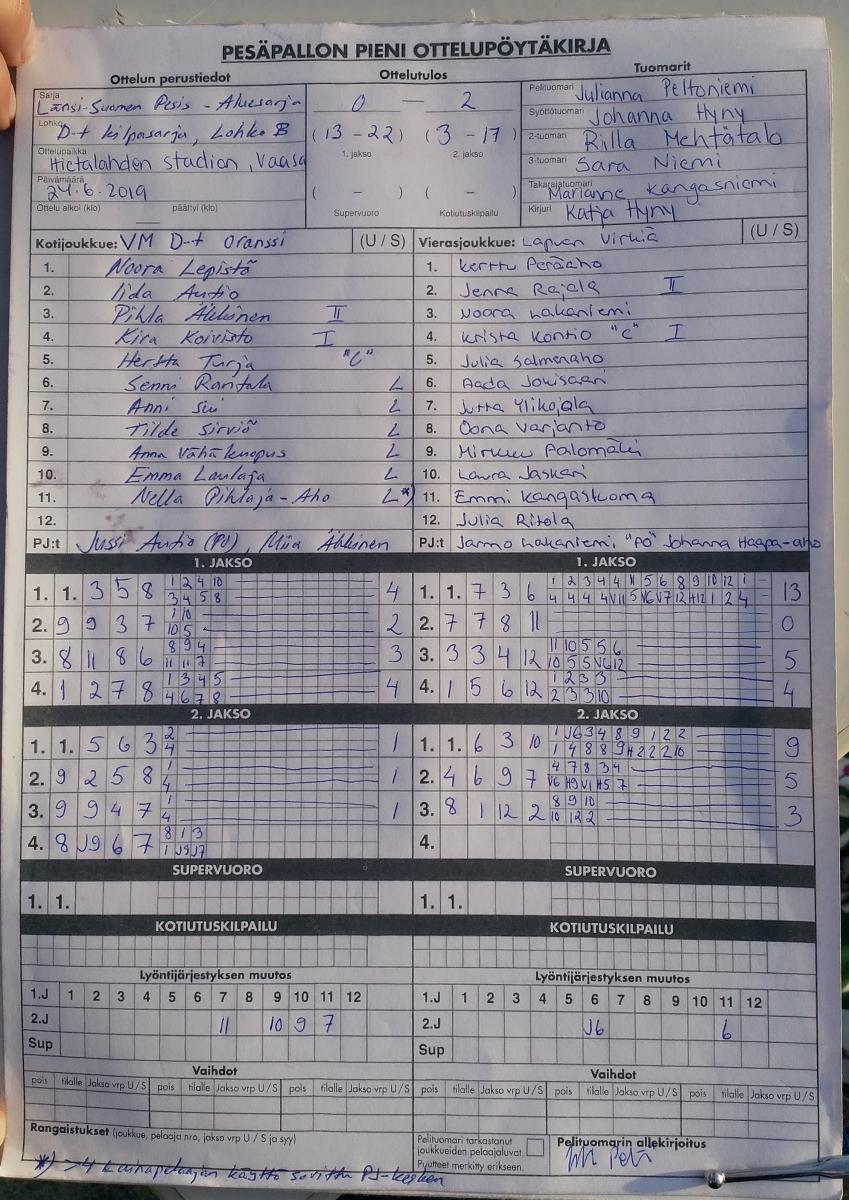 PESÄPALLON PIENI OTTELUPÖYTÄKIRJA
Ottelun perustiedot
Sarja
Länsi-Suomen Pesis - Aluesarja
Lohko
D-t kilpasarja, Lohko B
Ottelupaikka
Hietalahden stadion, Vaasa
Päivämäärä
24.6.2019
Ottelu alkoi (klo) päättyi (klo)
Ottelutulos
0 — 2
(13 - 22) (3 - 17)
1. jakso 2. jakso
( - ) ( - )
Supervuoro Kotiutuskilpailu
Tuomarit
Pelituomari Julianna Peltoniemi
Syöttötuomari Johanna Hyny
2-tuomari Riila Mehtätalo
3-tuomari Sara Niemi
Takarajatuomari Marianne Kangasniemi
Kirjuri Katja Hyny
Kotijoukkue: VM D-t Oranssi (U / S)
1. Noora Lepistö
2. Iida Autio
3. Pihla Äkkinen II
4. Kira Koivisto I
5. Hertta Turja "C"
6. Senni Rantala L
7. Anni L
8. Tilde Sirviö L
9. Anna Vähäkuopus L
10. Emma Laulaja L
11. Nella Pihlaja-Aho L*)
12.
PJ:t Jussi Autio (PJ), Miia Äkkinen
Vierasjoukkue: Lapuan Virkiä (U / S)
1. Kerttu Peräaho
2. Jenna Rajala II
3. Noora Lakaniemi
4. Krista Kontio "C" I
5. Julia Salmenaho
6. Aada Jouisaari
7. Jutta Ylikojola
8. Oona Varjanto
9. Mirkku Palomäki
10. Laura Jaskari
11. Emmi Kangasluoma
12. Julia Ritola
PJ:t Jarmo Lakaniemi, "PO" Johanna Haapa-aho
1. JAKSO
1. 1. 3 5 8 1 2 4 10 4
3 4 5 8
2. 9 9 3 7 1 10 2
10 5
3. 8 11 8 6 8 9 4 3
11 11 7
4. 1 2 7 8 1 3 4 5 4
4 6 7 8
1. JAKSO
1. 1. 7 3 6 1 2 3 4 4 11 5 6 8 9 10 12 1 13
4 4 4 4 V11 5 V6 V7 12 H12 1 2 4
2. 7 7 8 11 0
3. 3 3 4 12 11 10 5 5 6 5
10 5 5 V6 12
4. 1 5 6 12 1 2 3 3 4
2 3 3 10
2. JAKSO
1. 1. 5 6 3 2 1
4
2. 9 2 5 8 1 1
4
3. 9 9 4 7 1 1
4
4. 8 J9 6 7 8 1 3
1 J9 J7
2. JAKSO
1. 1. 6 3 10 1 J6 3 4 8 9 1 2 2 9
1 4 8 8 9 H2 2 2 10
2. 4 6 9 7 4 7 8 3 4 5
V6 H9 V1 H5 7
3. 8 1 12 2 8 9 10 3
10 12 2
4.
SUPERVUORO
1. 1.
SUPERVUORO
1. 1.
KOTIUTUSKILPAILU
KOTIUTUSKILPAILU
Lyöntijärjestyksen muutos
1.J 1 2 3 4 5 6 7 8 9 10 11 12
2.J 11 10 9 7
Sup
Lyöntijärjestyksen muutos
1.J 1 2 3 4 5 6 7 8 9 10 11 12
2.J J6 6
Sup
Vaihdot
pois tilalle Jakso vrp U / S pois tilalle Jakso vrp U / S pois tilalle Jakso vrp U / S
Vaihdot
pois tilalle Jakso vrp U / S pois tilalle Jakso vrp U / S pois tilalle Jakso vrp U / S
Rangaistukset (joukkue, pelaaja nro, jakso vrp U / S ja syy)
Pelituomari tarkastanut
joukkueiden pelaajaluvat.
Puutteet merkitty erikseen.
Pelituomarin allekirjoitus
*) >4 Lainapelaajan käyttö sovittu PJ-kesken